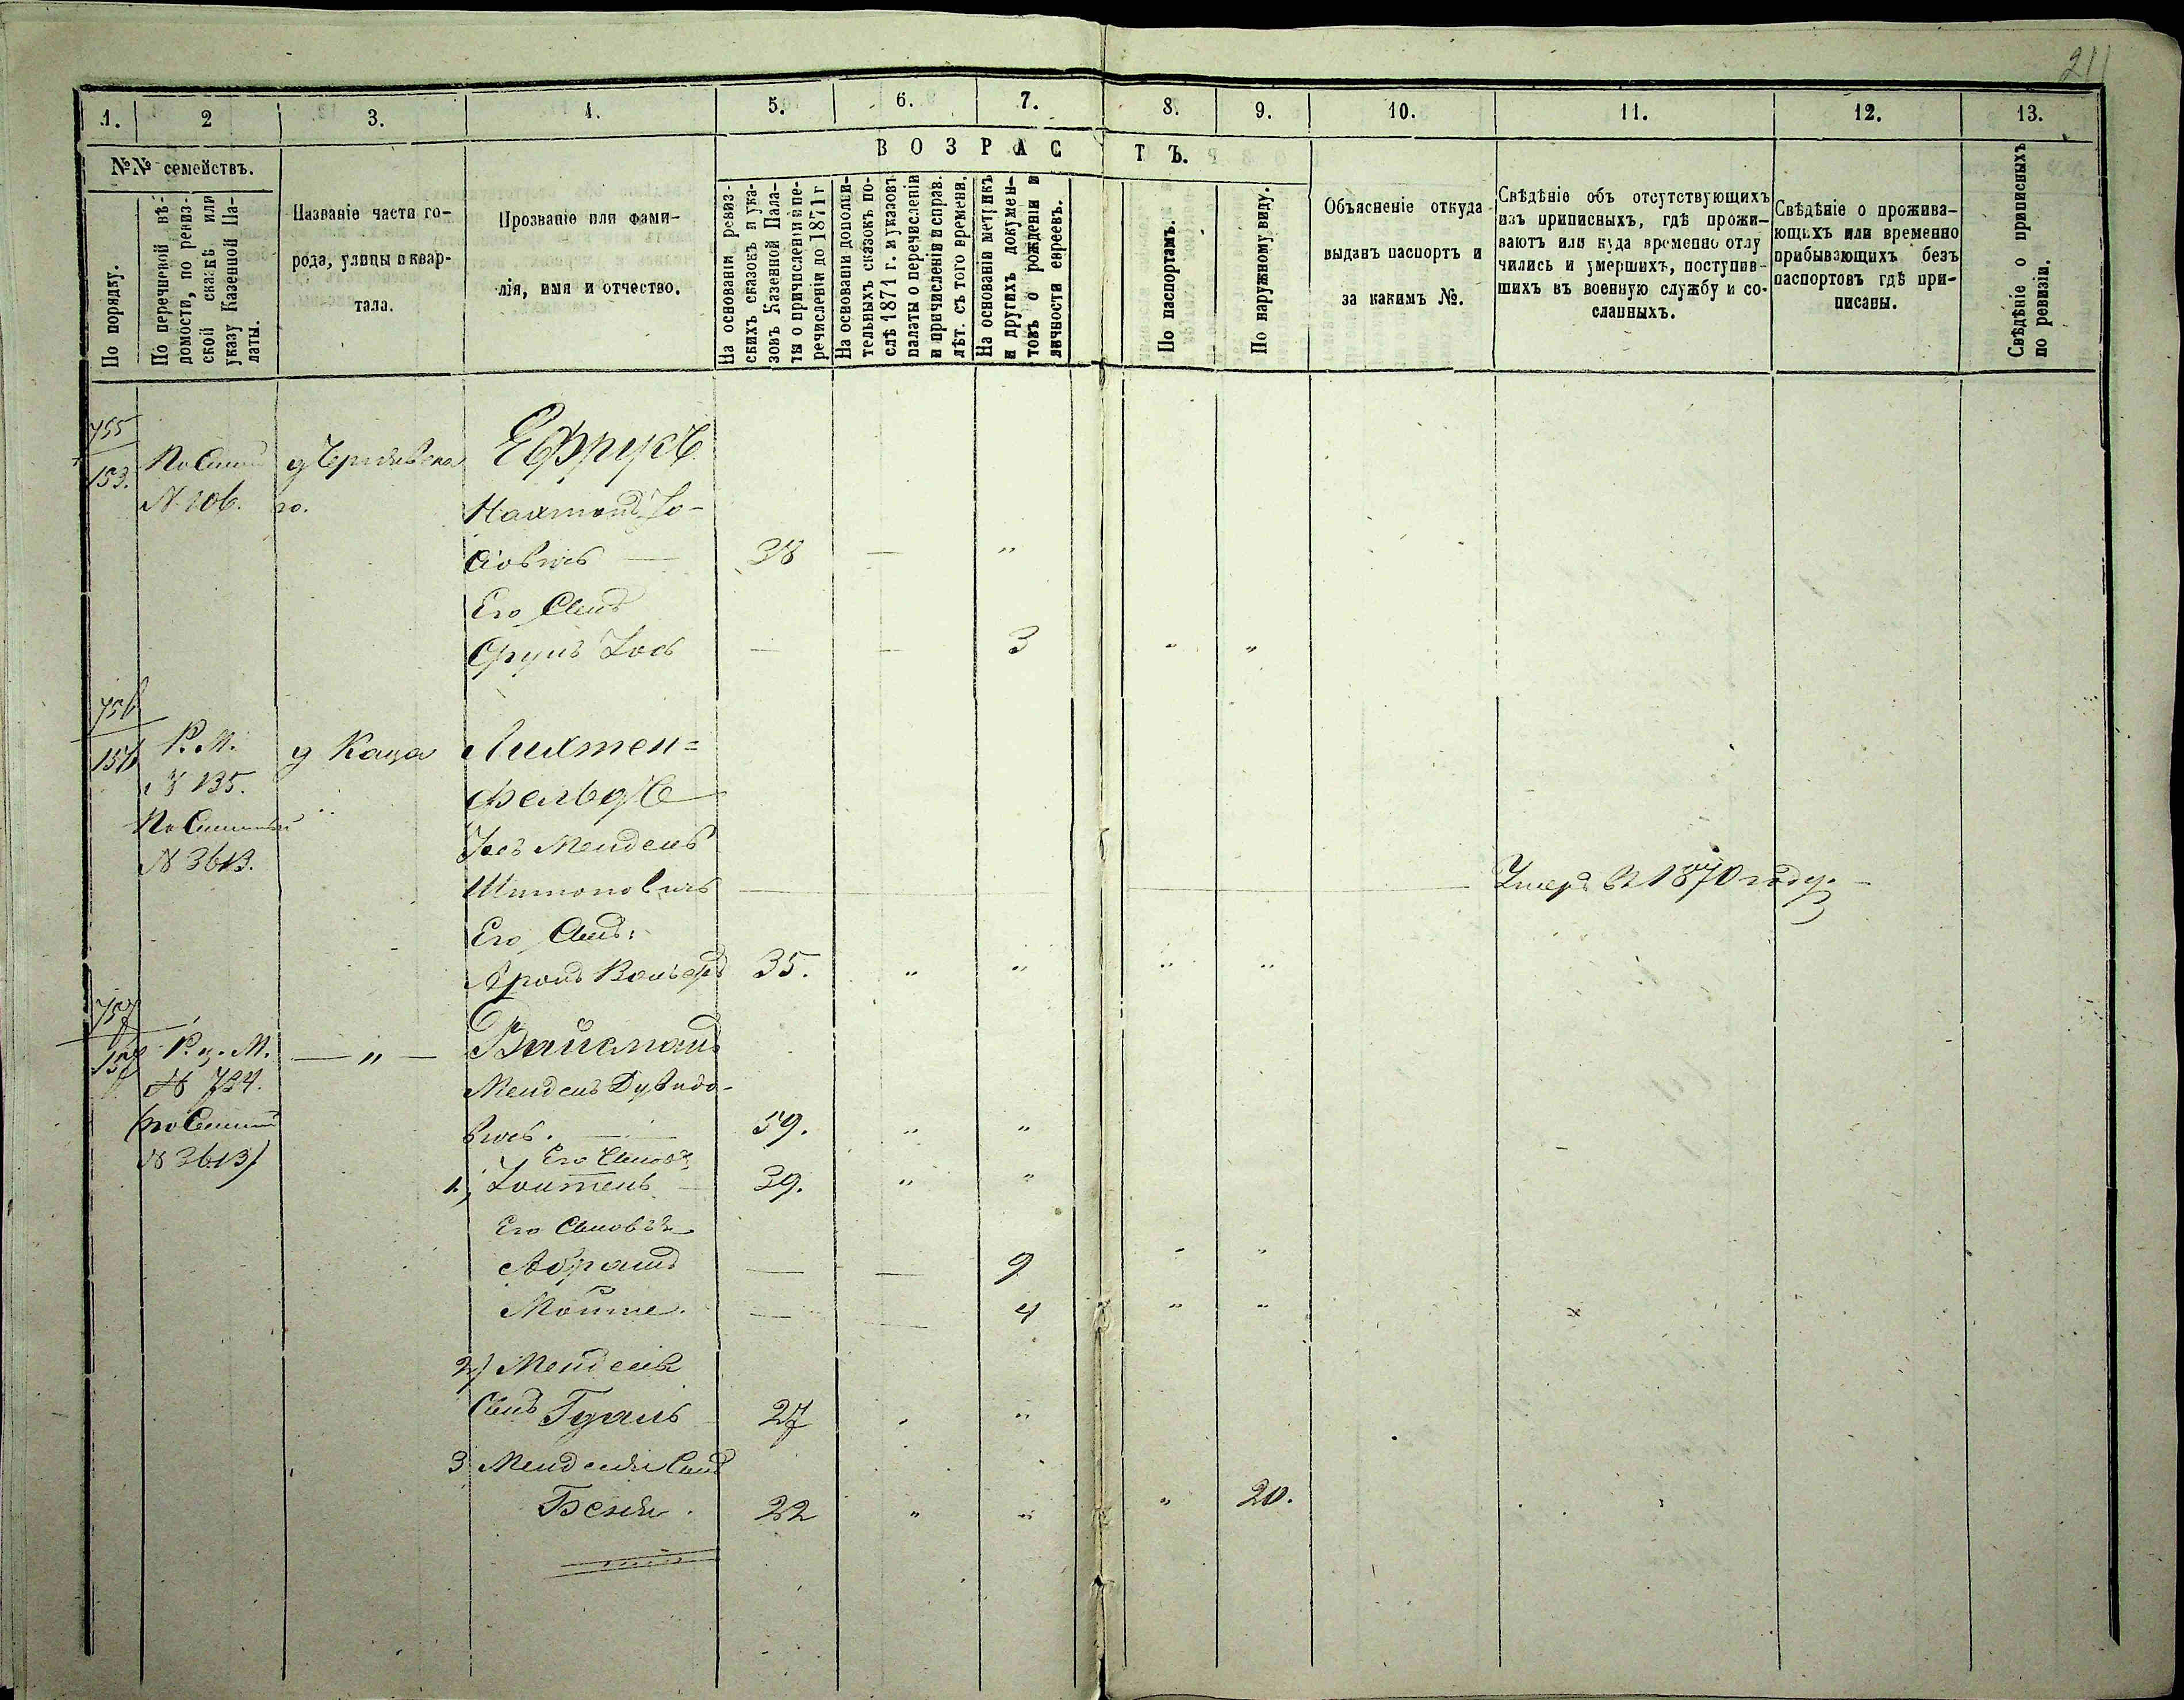 211
1. 2 3. 4. 5. 6. 7. 8. 9. 10. 11. 12. 13.
ВОЗРАСТЪ.
№№ семействъ.
По порядку.
По перечневой вѣ-
домости, по ревиз-
ской сказкѣ или
указу Казенной Па-
латы.
Названіе части го-
рода, улицы и квар-
тала.
Прозваніе или фами-
лія, имя и отчество.
На основаніи ревиз-
скихъ сказокъ и ука-
зовъ Казенной Пала-
ты о причисленіи и пе-
речисленіи до 1871 г
На основаніи дополни-
тельныхъ сказокъ по-
слѣ 1871 г. и указовъ
палаты о перечисленіи
и причисленіи и справ.
лѣт. съ того времени.
На основаніи метрикъ
и другихъ докумен-
товъ о рожденіи и
личности евреевъ.
По паспортамъ.
По наружному виду.
Объясненіе откуда
выданъ паспортъ и
за какимъ №.
Свѣдѣніе объ отсутствующихъ
изъ приписныхъ, гдѣ прожи-
ваютъ или куда временно отлу
чились и умершихъ, поступив-
шихъ въ военную службу и со-
сланныхъ.
Свѣдѣніе о прожива-
ющихъ или временно
прибывающихъ безъ
паспортовъ гдѣ при-
писаны.
Свѣдѣніе о приписныхъ
по ревизіи.
755
153. у Чернявска Ефрусъ
N 106. го.
Нахманъ Іо-
сіовичъ — 38 — "
Его Сынъ
Сруль Іось — — 3 " "
756
156 Р. М. у Каца Лихтен=
№ 135. фельдъ
N 3613. Іось Мендель
Шимоновичъ Умеръ въ 1870 году.
Его Сынъ:
Аронъ Вольфъ 35. " " " "
757
157 Р. г. М. — " — Вайсманъ
№ 724. Мендель Дувидо-
вичъ. — 59. " "
N 3613) Его Сыновья
1., Зонтель — 39. " "
Его Сыновья
Абрамъ — — 9 " "
Мошке. — — 4 " "
2) Менделя
Сынъ Гдаль 27 " "
3 Менделя Сынъ
Беня. 22 " " " 20.